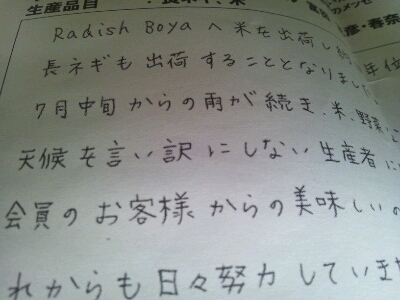 生産品目 : 長ネギ、米
のメッセ
彦・春奈
Radish Boya へ 米を出荷し
長ネギも出荷することとなりました
年位
7月中旬からの雨が続き、米、野菜に
天候を言い訳にしない生産者に
会員のお客様からの美味しいの
れからも日々努力しています